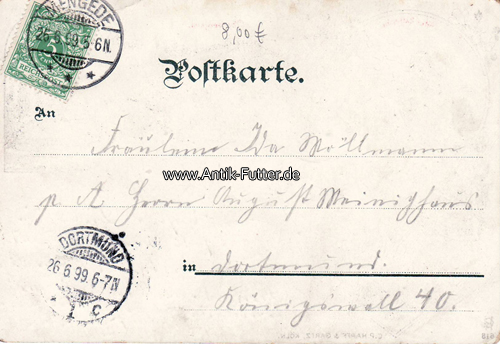 MENGEDE
26 6 99. 5-6N.
8,00 €
Postkarte.
An
Fräulein Ida Wöllmann
www.Antik-Futter.de
p A Herrn August
DORTMUND
26 6 99. 6-7N
1 c
in Dortmund.
Königswall 40.